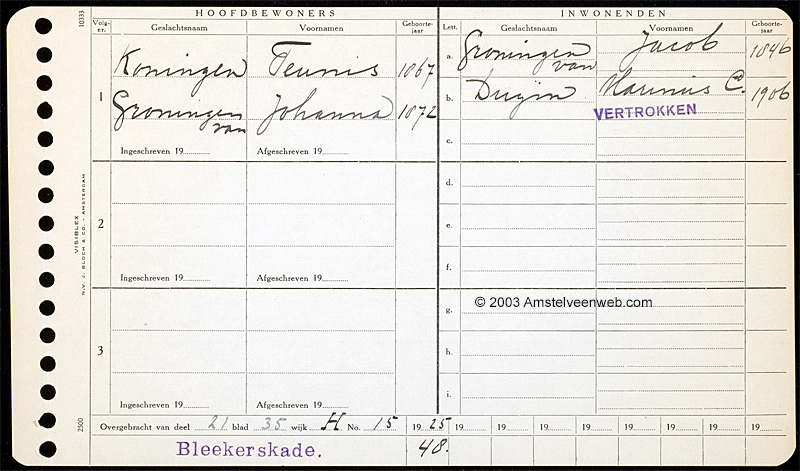 HOOFDBEWONERS
INWONENDEN
Volg-nr.
Geslachtsnaam
Voornamen
Geboorte-jaar
Lett.
Geslachtsnaam
Voornamen
Geboorte-jaar
1
Koningen Teunis 1867
Groningen van Johanna 1872
Ingeschreven 19 Afgeschreven 19
2
Ingeschreven 19 Afgeschreven 19
3
Ingeschreven 19 Afgeschreven 19
a. Groningen van Jacob 1846
b. Duijm Marinus C. 1906
VERTROKKEN
c.
d.
e.
f.
g.
© 2003 Amstelveenweb.com
h.
i.
Overgebracht van deel 21 blad 35 wijk H No. 15 1925 19 19 19 19 19 19 19 19
Bleekerskade. 48.
10333
VISIBLEX
N.V. J. BLOCH & CO. - AMSTERDAM
2500